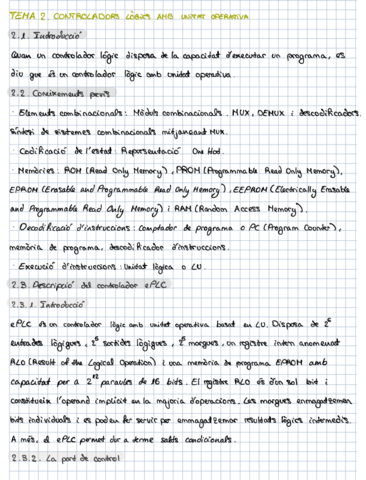 TEMA 2. CONTROLADORS LÒGICS AMB UNITAT OPERATIVA
2.1. Introducció
Quan un controlador lògic disposa de la capacitat d'executar un programa, es
diu que és un controlador lògic amb unitat operativa.
2.2. Coneixements previs
· Elements combinacionals: Mòduls combinacionals. MUX, DEMUX i descodificadors.
Síntesi de sistemes combinacionals mitjançant MUX.
· Codificació de l'estat: Representació One Hot.
· Memòries: ROM (Read Only Memory), PROM (Programmable Read Only Memory),
EPROM (Erasable and Programmable Read Only Memory), EEPROM (Electrically Erasable
and Programmable Read Only Memory) i RAM (Random Access Memory).
· Decodificació d'instruccions: comptador de programa o PC (Program Counter),
memòria de programa, descodificador d'instruccions.
· Execució d'instruccions: unitat lògica o LU.
2.3. Descripció del controlador ePLC
2.3.1. Introducció
ePLC és un controlador lògic amb unitat operativa basat en LU. Disposa de 2⁶
entrades lògiques, 2⁵ sortides lògiques, 2⁵ marques, un registre intern anomenat
RLO (Result of the Logical Operation) i una memòria de programa EPROM amb
capacitat per a 2¹² paraules de 16 bits. El registre RLO és d'un sol bit i
constitueix l'operand implícit en la majoria d'operacions. Les marques emmagatzemen
bits individuals i es poden fer servir per emmagatzemar resultats lògics intermedis.
A més, el ePLC permet dur a terme salts condicionals.
2.3.2. La part de control